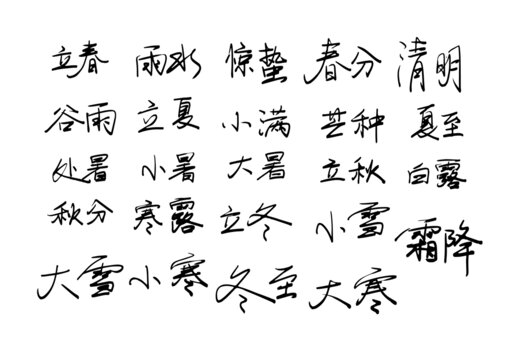 立春 雨水 惊蛰 春分 清明
谷雨 立夏 小满 芒种 夏至
处暑 小暑 大暑 立秋 白露
秋分 寒露 立冬 小雪 霜降
大雪 小寒 冬至 大寒